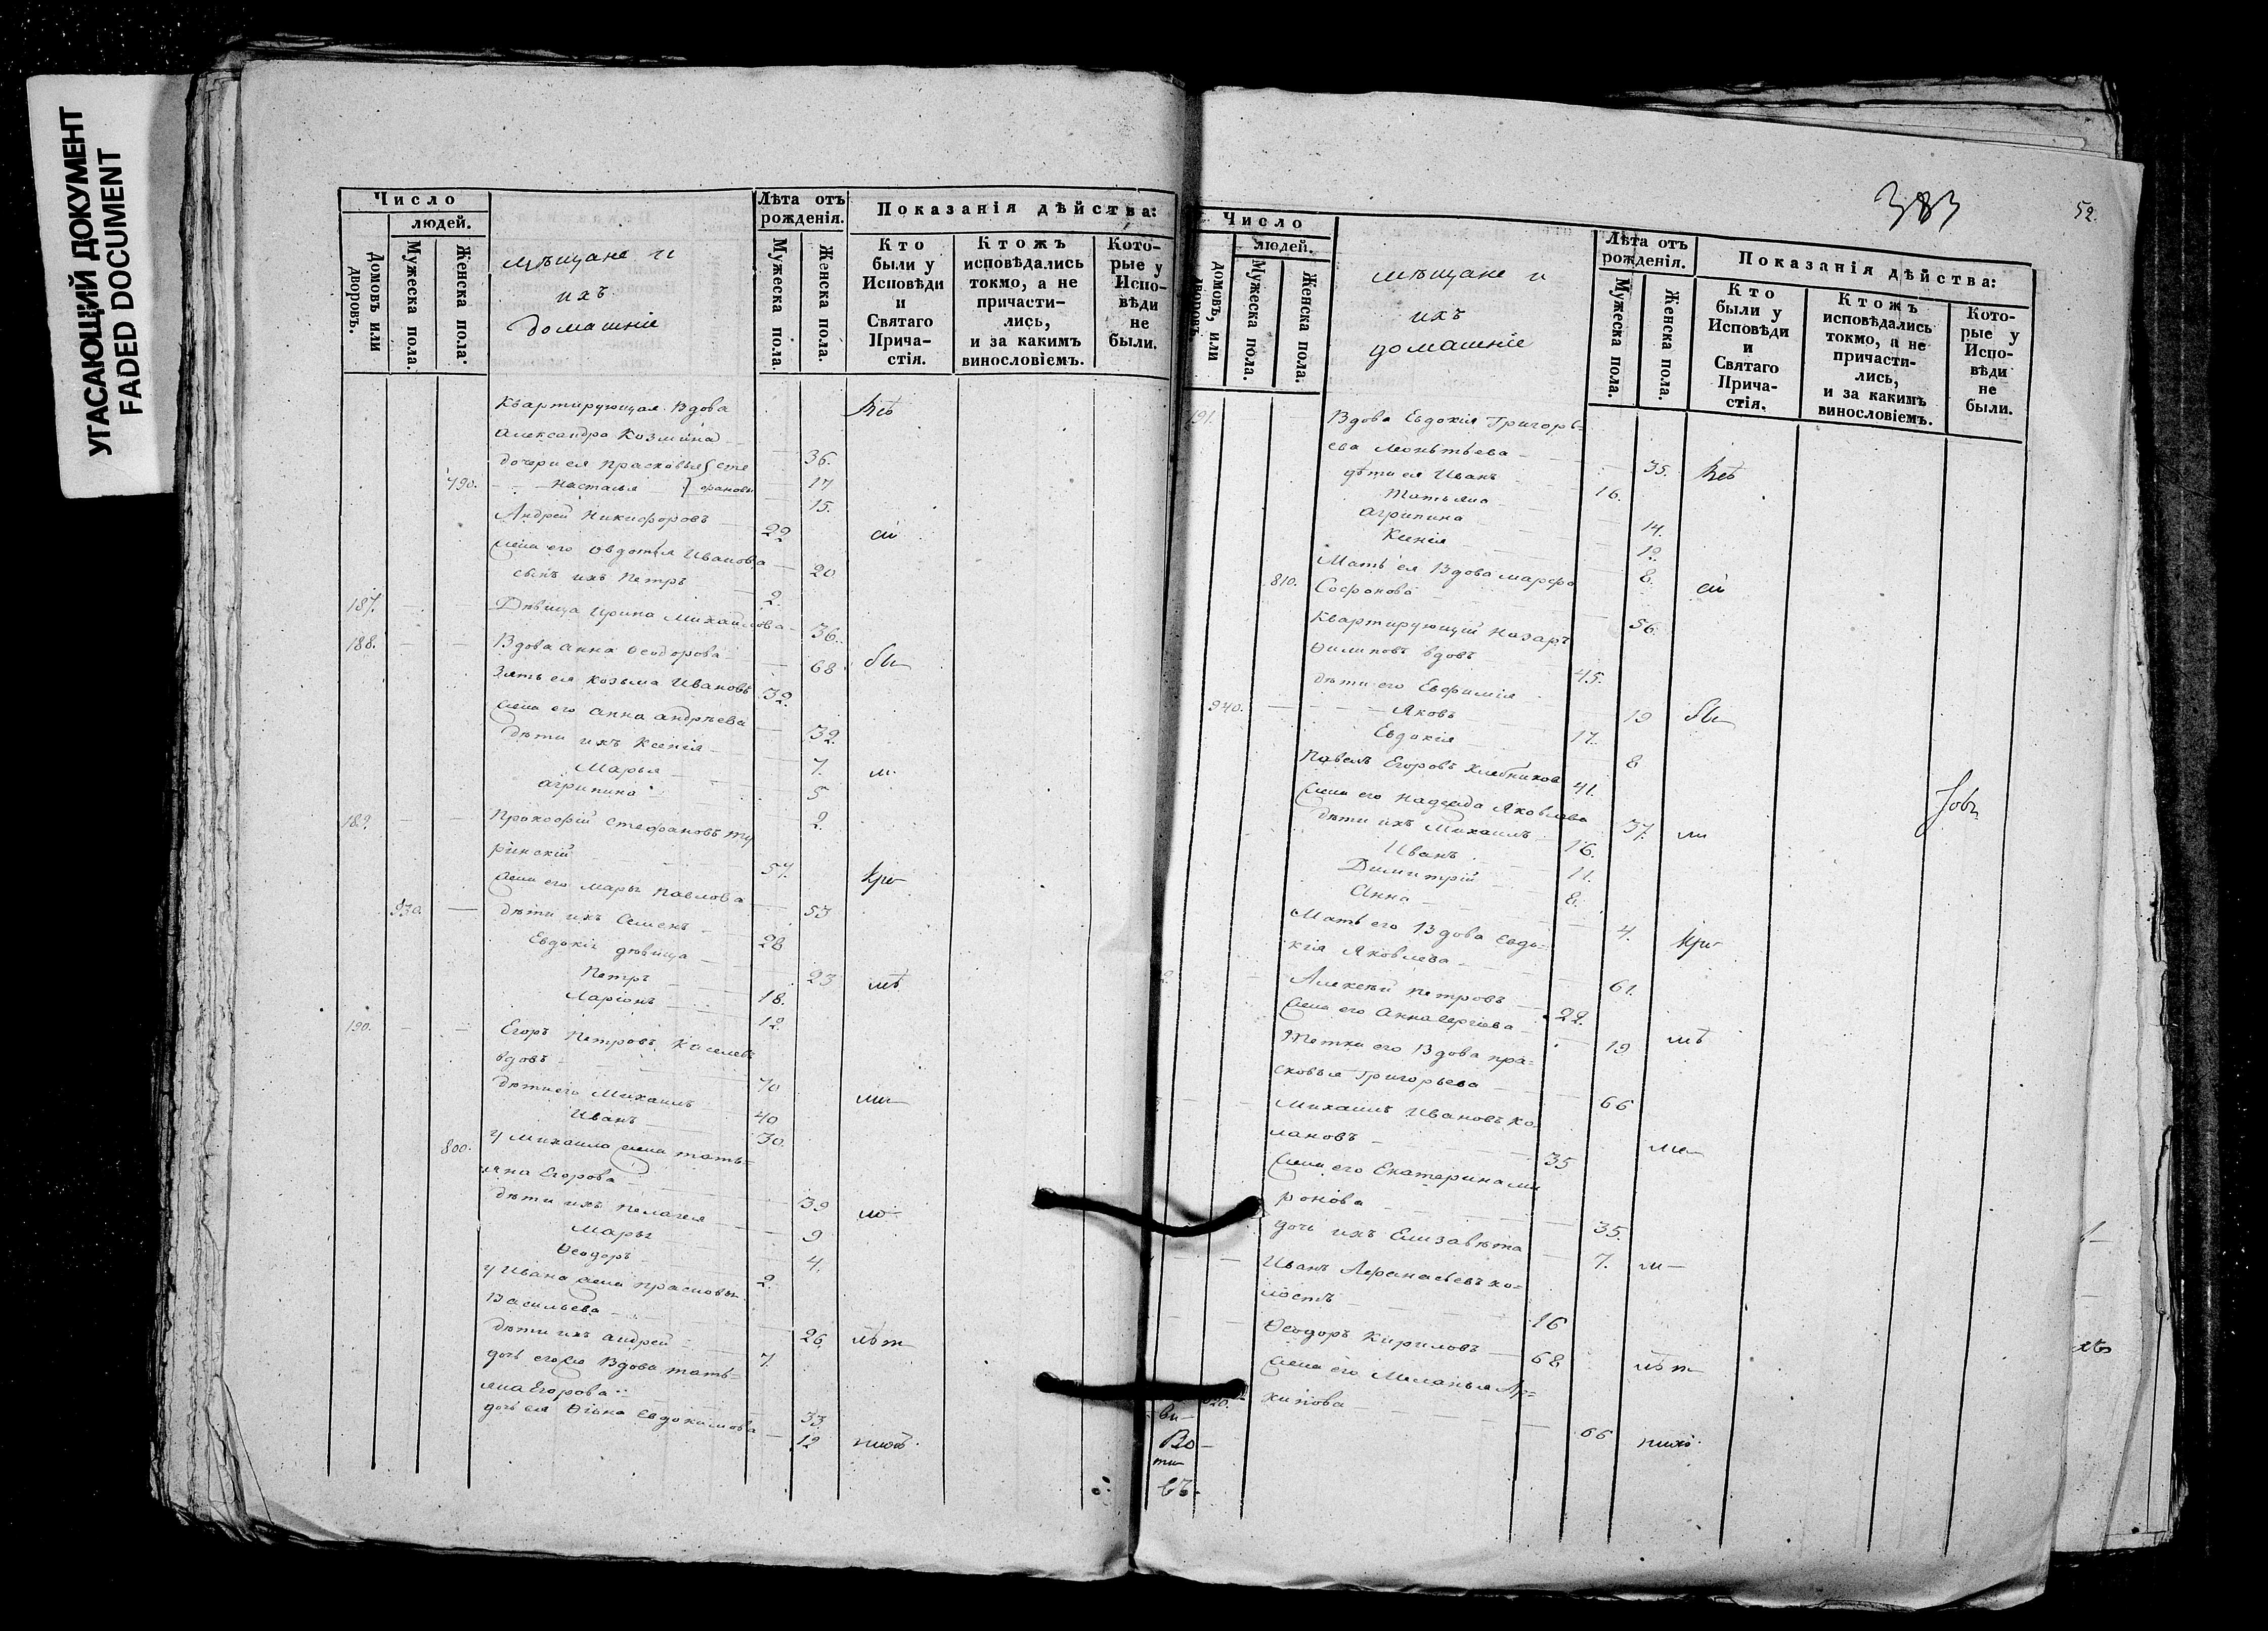 УГАСАЮЩИЙ ДОКУМЕНТ
FADED DOCUMENT
Число
людей.
Домовъ или дворовъ.
Мужеска пола.
Женска пола.
мѣщане и
ихъ
домашніе
Лѣта отъ рожденія.
Мужеска пола.
Женска пола.
Показанія дѣйства:
Кто были у Исповѣди и Святаго Прича-стія.
Ктожъ исповѣдались токмо, а не причасти-лись, и за какимъ винословіемъ.
Кото-рые у Испо-вѣди не были.
Квартирующая Вдова
Александра Козмина 36.
дочери ея Прасковья Сте 17
790. Настасья фановы 15.
Андрей Никифоровъ 22
жена его Овдотья Иванова 20
сынъ ихъ Петръ 2.
187. Дѣвица Ирина Михаилова 36.
188. Вдова Анна Ѳеодорова 68
Зять ея Козьма Ивановъ 32.
жена его Анна Андреева 32.
дѣти ихъ Ксенія 7.
Марья 5
Агрипина 2.
189. Прокофій Стефановъ Ту
ринскій 57.
жена его Марья Павлова 53
930. дѣти ихъ Семенъ 28
Евдокія дѣвица 23
Петръ 18.
Ларіонъ 12.
190. Егоръ Петровъ Киселевъ
вдовъ 70
дѣти его Михаилъ 40
Иванъ 30.
800. у Михаила жена Тать=
яна Егорова 39
дѣти ихъ Пелагея 9
Марья 4.
Ѳеодоръ 2.
у Ивана жена Прасковья
Васильева 26
дѣти ихъ Андрей 7.
дочь его Вдова Тать=
яна Егорова 33
дочь ея Евдокимова 12
383
52.
Число
людей.
домовъ, или дворовъ.
Мужеска пола.
Женска пола.
мѣщане и
ихъ
домашніе
Лѣта отъ рожденія.
Мужеска пола.
Женска пола.
Показанія дѣйства:
Кто были у Исповѣди и Святаго Прича-стія.
Ктожъ исповѣдались токмо, а не причасти-лись, и за какимъ винословіемъ.
Кото-рые у Испо-вѣди не были.
191. Вдова Евдокія Григорь=
ева Леонтьева 35.
дѣти ея Иванъ 16.
Татьяна 14.
Агрипина 12.
Ксенія 8.
Мать ея Вдова Марфа
810. Софронова 56.
Квартирующій Назаръ
Филиповъ вдовъ 45.
дѣти его Евфимія 19
940. Яковъ 17.
Евдокія 8
Павелъ Егоровъ Хлебников 41.
жена его Надежда Яковлева 37.
дѣти ихъ Михаилъ 16.
Иванъ 11.
Димитрій 8.
Анна 4.
Мать его Вдова Евдо=
кія Яковлева 61.
Алексѣй Петровъ 22.
жена его Анна Сергіева 19
Тетка его Вдова Пра=
сковья Григорьева 66
Михаилъ Ивановъ Ко
лановъ 35
жена его Екатерина Ми
ронова 35.
дочь ихъ Елизавѣта 7.
Иванъ Афанасьевъ хо=
лостъ 16
Ѳеодоръ Кириловъ 68
жена его Меланья Ар=
хипова 66